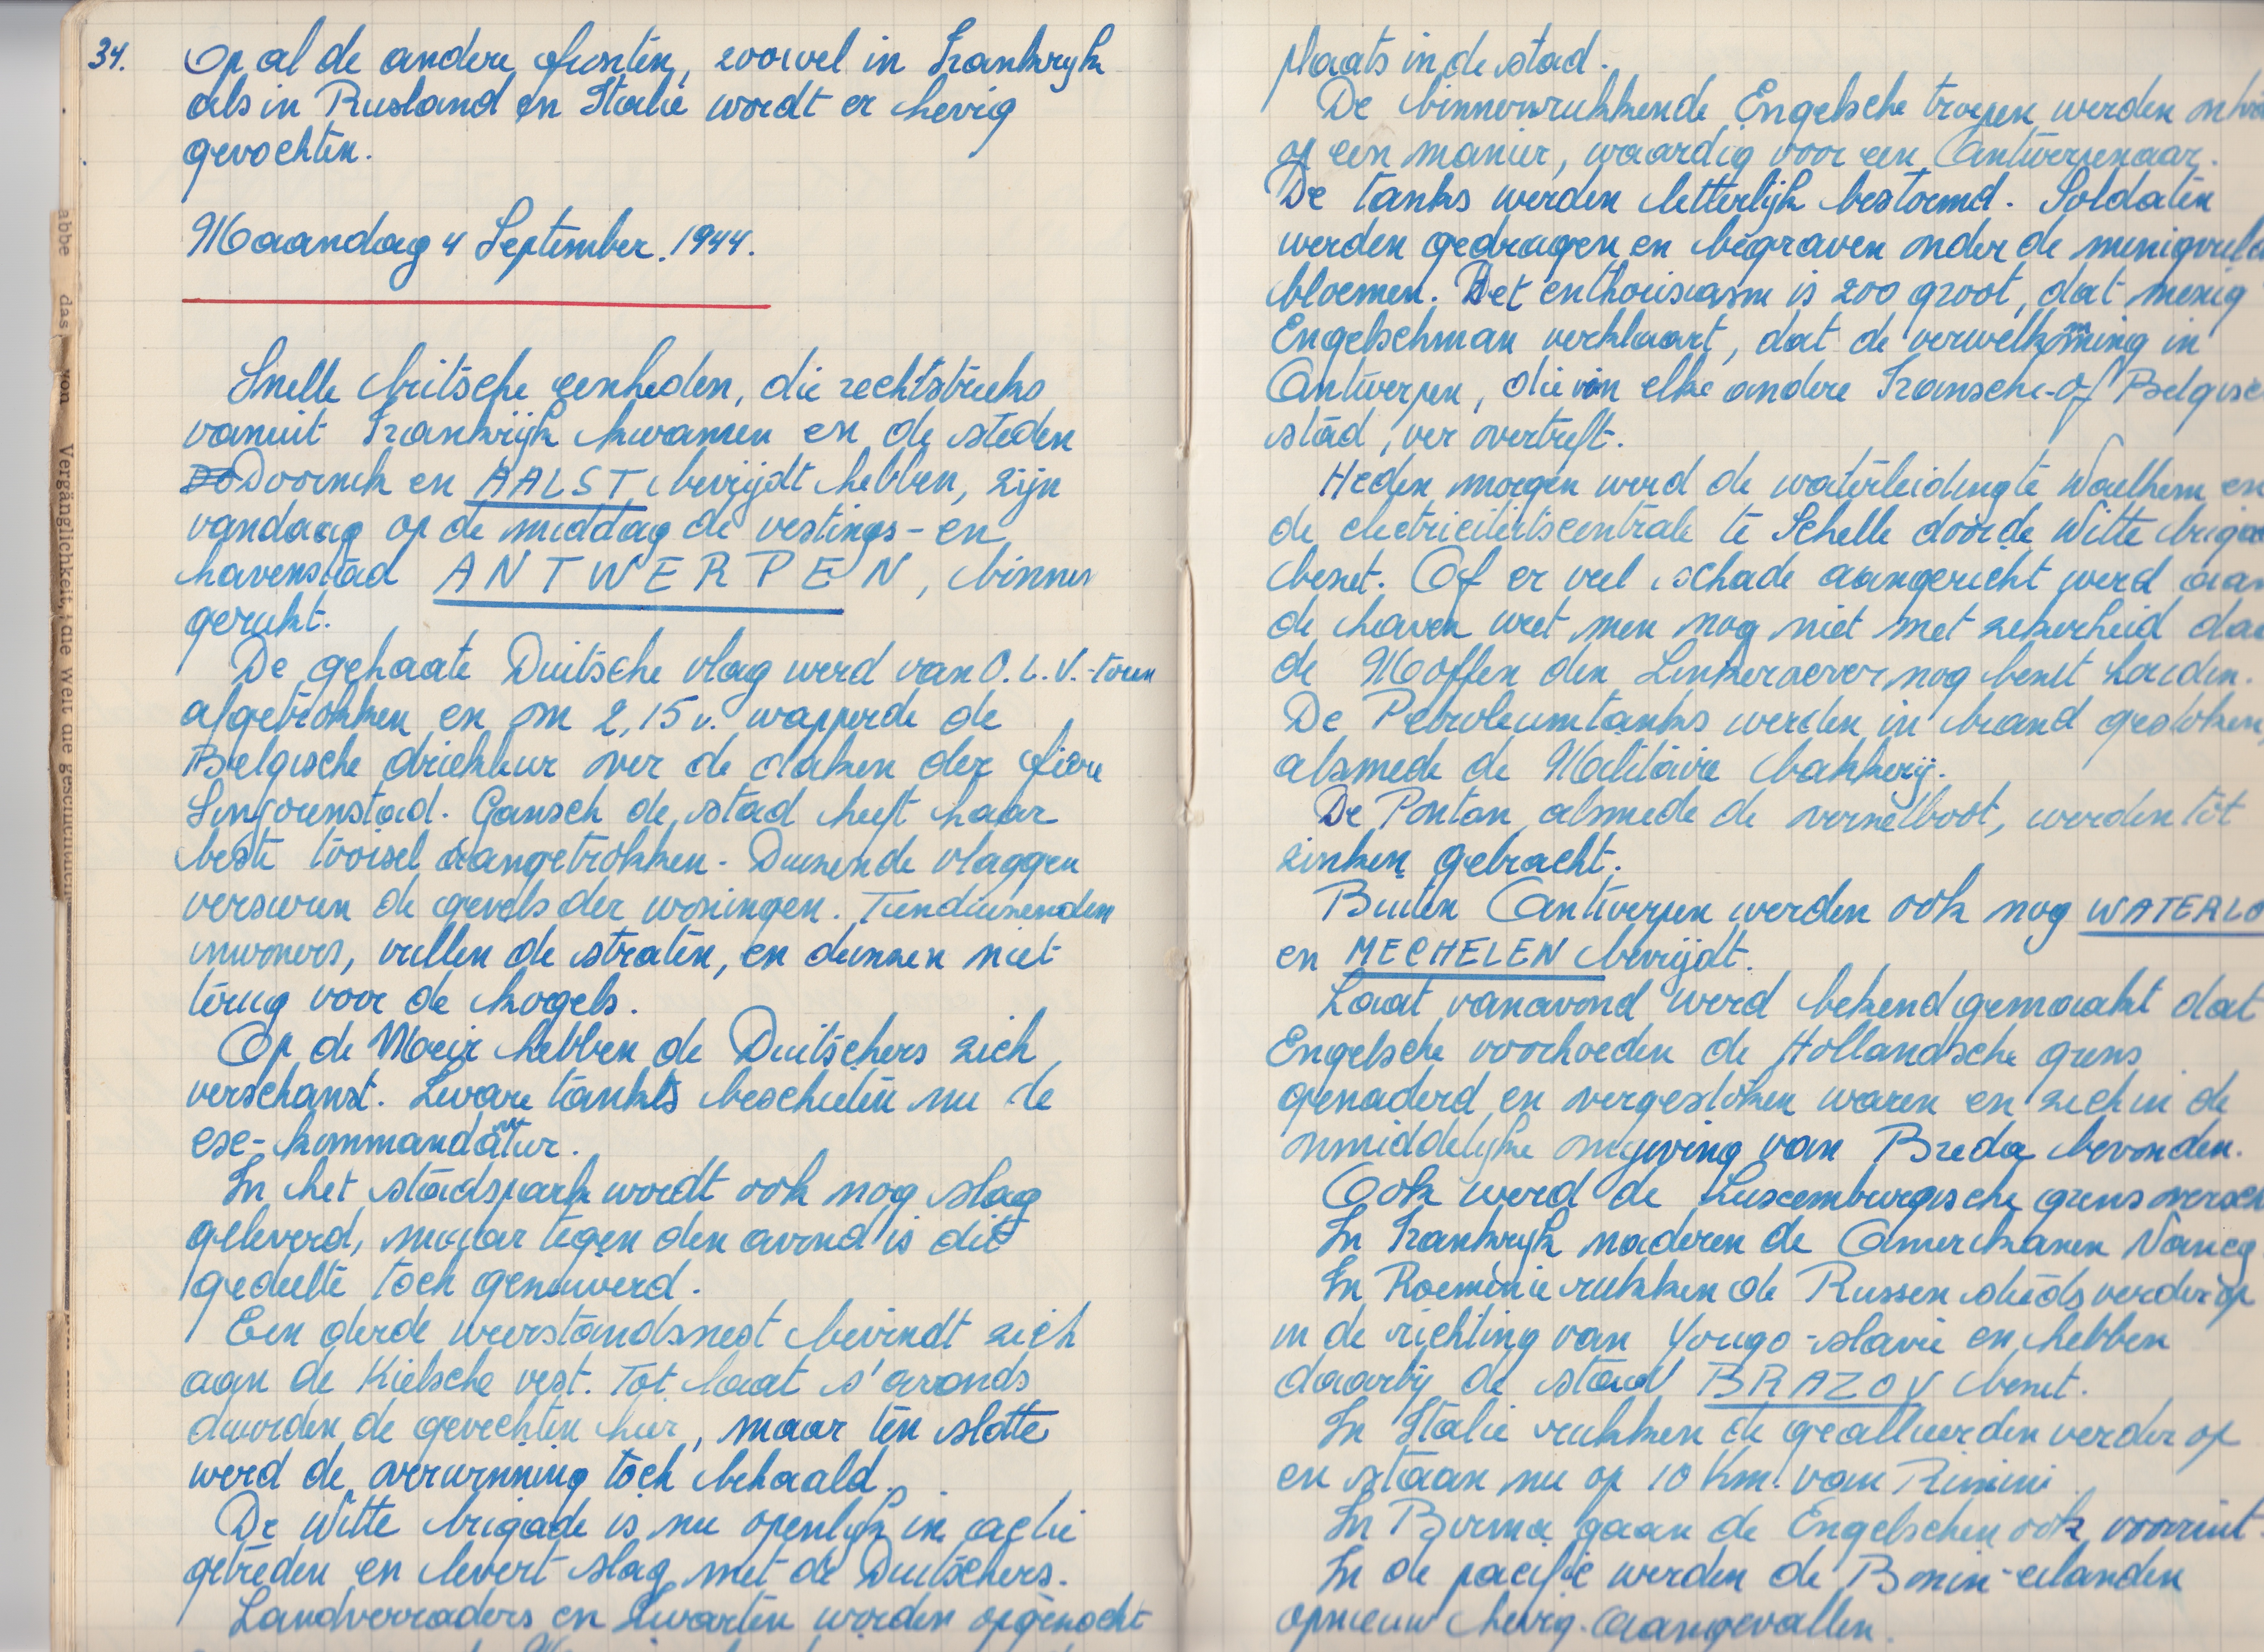 34.
Op al de andere fronten, zoowel in Frankryk
als in Rusland en Italië wordt er hevig
gevochten.
Maandag 4 September. 1944.
Snelle britsche eenheden, die rechtstreeks
vanuit Frankrijk kwamen en de steden
Doornik en AALST bevrijdt hebben, zijn
vandaag op de middag de vestings- en
havenstad ANTWERPEN, binnen
gerukt.
De gehaate Duitsche vlag werd van O.L.V.-toren
afgetrokken en om 2,15 u. wapperde de
Belgische driekleur over de daken der fiere
Sinjorenstad. Gansch de stad heeft haar
beste tooisel aangetrokken. Duizende vlaggen
versieren de gevels der woningen. Tienduizenden
inwoners, vullen de straten, en deinzen niet
terug voor de kogels.
Op de Meir hebben de Duitschers zich
verschanst. Zware tanks beschieten nu de
ese-kommandatur.
In het stadspark wordt ook nog slag
geleverd, maar tegen den avond is dit
gedeelte toch gezuiverd.
Een derde weerstandsnest bevindt zich
aan de Kielsche vest. Tot laat s'avonds
duurden de gevechten hier, maar ten slotte
werd de overwinning toch behaald.
De Witte brigade is nu openlijk in actie
getreden en levert slag met de Duitschers.
Landverraders en Zwarten worden opgezocht
abbe das von Vergänglichkeit, die Welt die geschichtlich
plaats in de stad.
De binnenrukkende Engelsche troepen werden
op een manier, waardig voor een Antwerpenaar.
De tanks werden letterlijk bestormd. Soldaten
werden gedragen en begraven onder de menigvuld
bloemen. Het enthousiasm is zoo groot, dat menig
Engelschman verklaart, dat de verwelkoming in
Antwerpen, die van elke andere Fransche-of Belgisc
stad, ver overtreft.
Heden morgen werd de waterleiding te Waelhem en
de electriciteitscentrale te Schelle door de Witte briga
bezet. Of er veel schade aangericht werd aan
de haven weet men nog niet met zekerheid daa
de Moffen den Linkeroever nog bezet houden.
De Petroleumtanks werden in brand gestoken,
alsmede de Militaire bakkerij.
De Ponton, alsmede de overzetboot, werden tot
zinken gebracht.
Buiten Antwerpen werden ook nog WATERLO
en MECHELEN bevrijdt.
Laat vanavond werd bekend gemaakt dat
Engelsche voorhoeden de Hollandsche grens
genaderd en overgestoken waren en zich in de
onmiddelyke omgeving van Breda bevonden.
Ook werd de Luxemburgische grens oversch
In Frankryk naderen de Amerikanen Nancy
In Roemenie rukken de Russen steeds verder op
in de richting van Yougo-slavie en hebben
daarbij de stad BRAZOV bezet.
In Italie rukken de gealleerden verder op
en staan nu op 10 Km. van Rimini
In Birma gaan de Engelschen ook vooruit-
In de pacific werden de Bonin-eilanden
opnieuw hevig aangevallen.